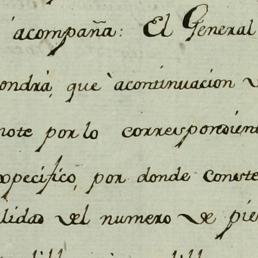 acompaña: El General
ondrá, que acontinuacion
note por lo correspondien
specifico, por donde conste
lidad del numero de pie